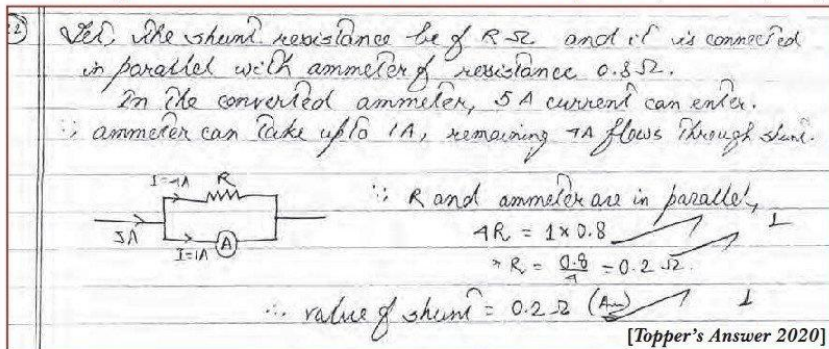 2)
Let, the shunt resistance be of R Ω and it is connected
in parallel with ammeter of resistance 0.8 Ω.
In the converted ammeter, 5 A current can enter.
∵ ammeter can take upto 1A, remaining 4A flows through shunt.
I=4A R
5A
I=1A A
∵ R and ammeter are in parallel,
4R = 1 × 0.8
R = 0.8/4 = 0.2 Ω. 1
∴ value of shunt = 0.2 Ω (Ans) 1
[Topper's Answer 2020]